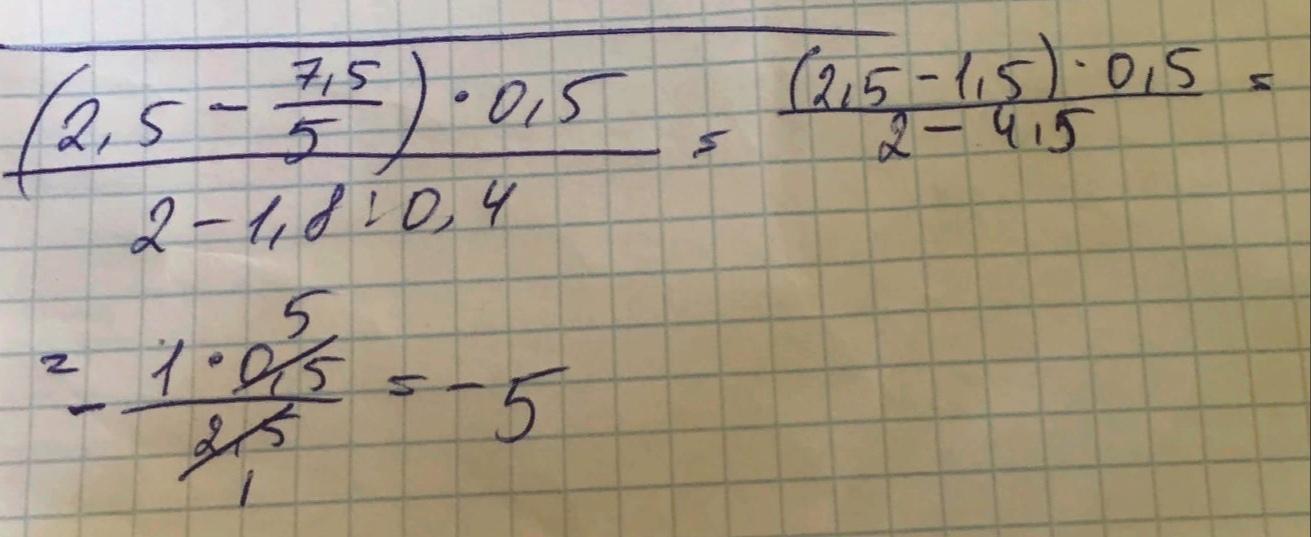 (2,5 - 7,5/5) · 0,5 / 2 - 1,8 : 0,4 = (2,5 - 1,5) · 0,5 / 2 - 4,5 =
= - 1 · 0,5 5 / 2,5 1 = - 5